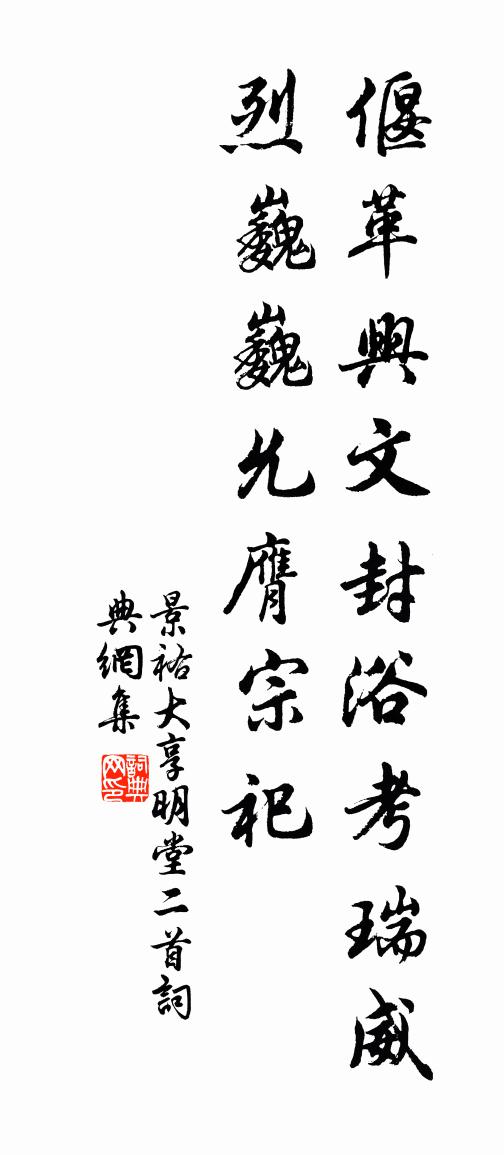 偃革興文封浴考瑞威
烈巍巍允膺宗祀
景祐大享明堂二首詞
典網集
詞典网印